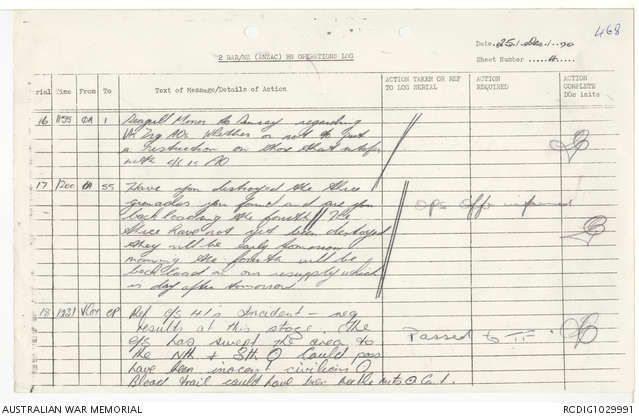 468
Date 25 / Dec / 70
2 RAR/NZ (ANZAC) BN OPERATIONS LOG
Sheet Number 4
erial Time From To Text of Message/Details of Action ACTION TAKEN OR REF TO LOG SERIAL ACTION REQUIRED ACTION COMPLETE DOs inits
16 1155 1 Seagull Minor to regarding
Whether or not to put
a restruction on those that
with c/s in AO
17 1200 55 Have you destroyed the three
grenades you found and are you
back loading the fourth // The
three have not yet been destroyed
they will be early tomorrow
morning the fourth will be
back load on our resupply which
is day after tomorrow
Ops Offr informed
18 1231 CP Ref c/s 41's Incident - neg
results at this stage. (The
c/s has swept the area to
the Nth & Sth Could poss
have been inocent civilians
Blood trail could have been
Passed to TF.
AUSTRALIAN WAR MEMORIAL
RCDIG1029991